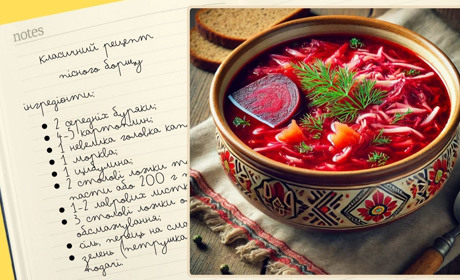 notes
класичний рецепт
пісного борщу
інгредієнти:
• 2 середніх буряки;
• 4-5 картоплин;
• 1 невелика головка кап
• 1 морква;
• 1 цибулина;
• 2 столові ложки т
пасти або 200 г т
• 1-2 лаврових листк
• 3 столові ложки о
обсмажування;
• сіль, перець на сма
• зелень (петрушка
подачі.